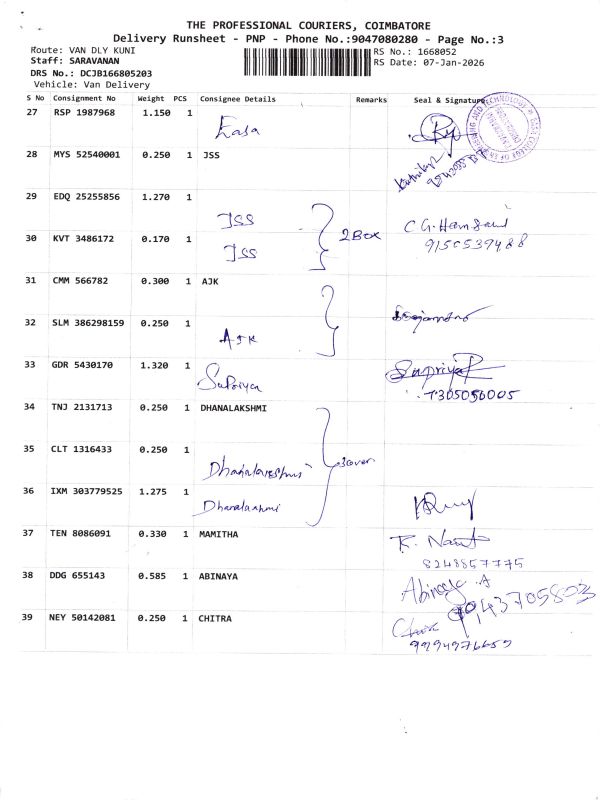 THE PROFESSIONAL COURIERS, COIMBATORE
Delivery Runsheet - PNP - Phone No.:9047080280 - Page No.:3
Route: VAN DLY KUNI
RS No.: 1668052
Staff: SARAVANAN
RS Date: 07-Jan-2026
DRS No.: DCJB166805203
Vehicle: Van Delivery
S No Consignment No Weight PCS Consignee Details Remarks Seal & Signature
27 RSP 1987968 1.150 1 Easa
28 MYS 52540001 0.250 1 JSS
29 EDQ 25255856 1.270 1 JSS
2 Box
30 KVT 3486172 0.170 1 JSS
31 CMM 566782 0.300 1 AJK
32 SLM 386298159 0.250 1 AJK
33 GDR 5430170 1.320 1 Supriya Supriya
7305050005
34 TNJ 2131713 0.250 1 DHANALAKSHMI
35 CLT 1316433 0.250 1 Dhanalakshmi
3 cover
36 IXM 303779525 1.275 1 Dhanalakshmi
37 TEN 8086091 0.330 1 MAMITHA
8248857775
38 DDG 655143 0.585 1 ABINAYA Abinaya A
39 NEY 50142081 0.250 1 CHITRA